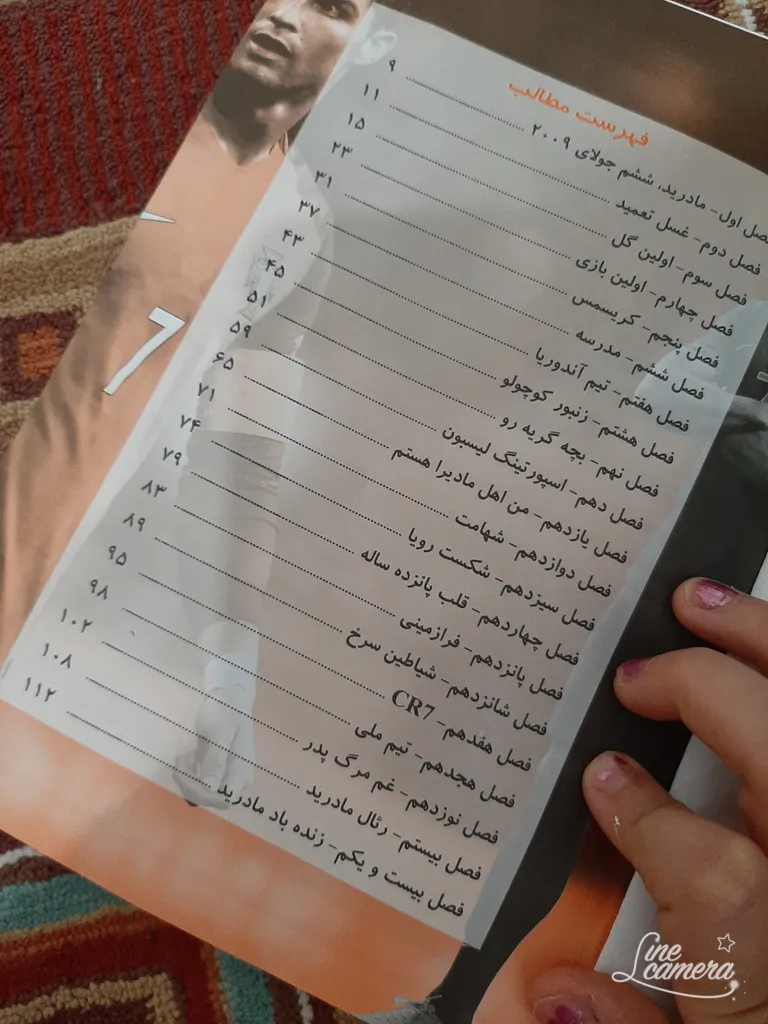 فهرست مطالب
فصل اول- مادرید، ششم جولای ۲۰۰۹ ........ ۹
فصل دوم- غسل تعمید ........ ۱۱
فصل سوم- اولین گل ........ ۱۵
فصل چهارم- اولین بازی ........ ۲۳
فصل پنجم- کریسمس ........ ۳۱
فصل ششم- مدرسه ........ ۳۷
فصل هفتم- تیم آندوریا ........ ۴۳
فصل هشتم- زنبور کوچولو ........ ۴۵
فصل نهم- بچه گریه رو ........ ۵۱
فصل دهم- اسپورتینگ لیسبون ........ ۵۹
فصل یازدهم- من اهل مادیرا هستم ........ ۶۵
فصل دوازدهم- شهامت ........ ۷۱
فصل سیزدهم- شکست رویا ........ ۷۴
فصل چهاردهم- قلب پانزده ساله ........ ۷۹
فصل پانزدهم- فرازمینی ........ ۸۳
فصل شانزدهم- شیاطین سرخ ........ ۸۹
فصل هفدهم- CR7 ........ ۹۵
فصل هجدهم- تیم ملی ........ ۹۸
فصل نوزدهم- غم مرگ پدر ........ ۱۰۲
فصل بیستم- رئال مادرید ........ ۱۰۸
فصل بیست و یکم- زنده باد مادرید ........ ۱۱۲
7
Line camera